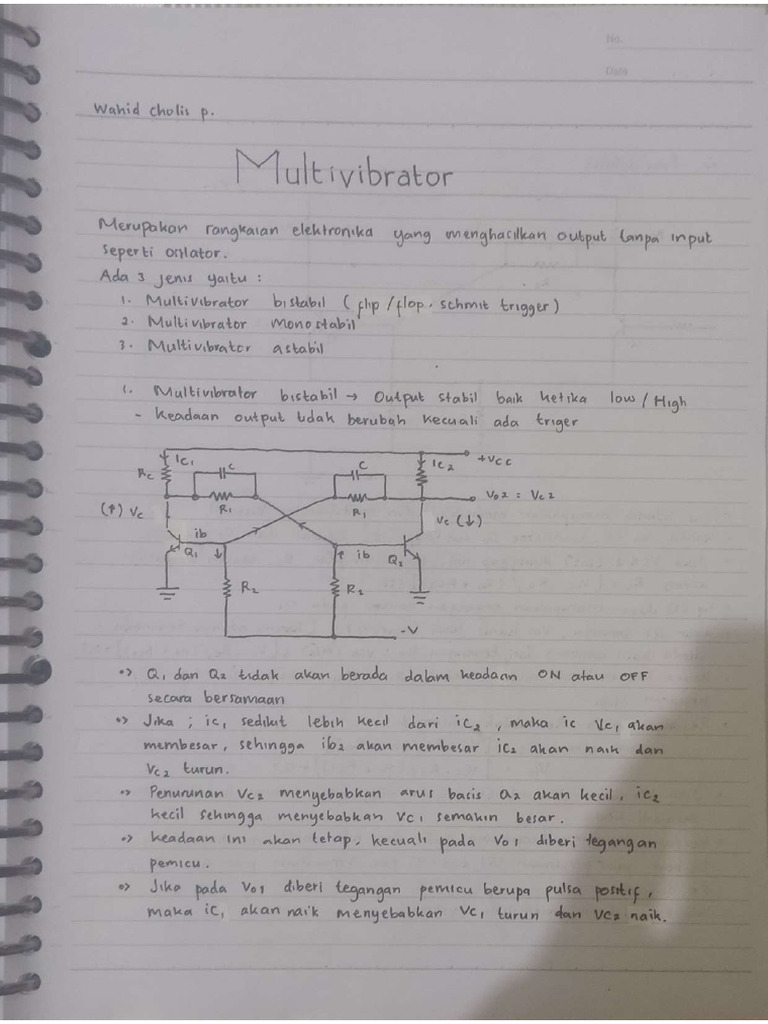 No.
Date
Wahid Cholis p.
Multivibrator
Merupakan rangkaian elektronika yang menghasilkan output tanpa input
seperti osilator.
Ada 3 jenis yaitu :
1. Multivibrator bistabil ( flip / flop . schmit trigger )
2. Multivibrator monostabil
3. Multivibrator astabil
1. Multivibrator bistabil → Output stabil baik ketika low / High
- Keadaan output tidak berubah kecuali ada triger
IC1 C C IC2 +VCC
RC
R1 R1 Vo2 = VC2
(↑) VC VC (↓)
ib
Q1 ↓ ↑ ib Q2
R2 R2
-V
•> Q1 dan Q2 tidak akan berada dalam keadaan ON atau OFF
secara bersamaan
•> Jika ; ic1 sedikit lebih kecil dari ic2 , maka ic Vc1 akan
membesar , sehingga ib2 akan membesar ic2 akan naik dan
Vc2 turun.
•> Penurunan Vc2 menyebabkan arus basis Q2 akan kecil, ic2
kecil sehingga menyebabkan Vc1 semakin besar.
•> keadaan ini akan tetap, kecuali pada Vo1 diberi tegangan
pemicu.
•> Jika pada Vo1 diberi tegangan pemicu berupa pulsa positif,
maka ic1 akan naik menyebabkan Vc1 turun dan Vc2 naik.